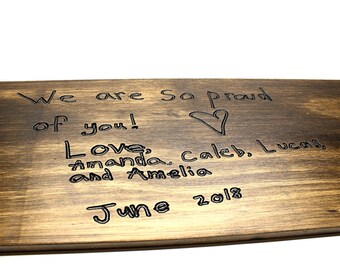 We are so proud
of you!
Love,
Amanda, Caleb, Lucas,
and Amelia
June 2018